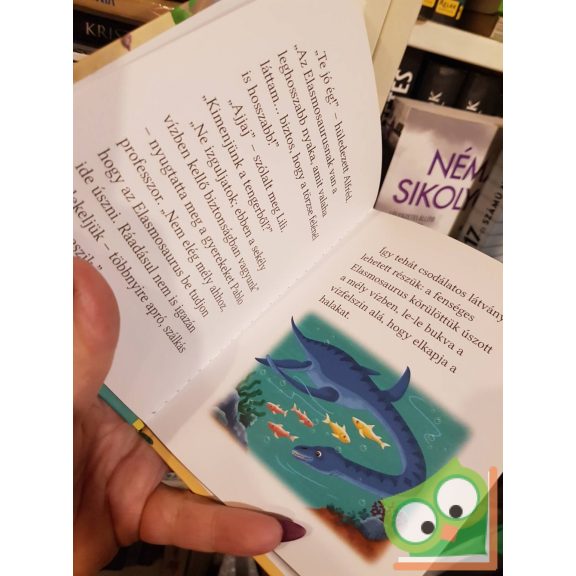 „Te jó ég!" – hüledezett Alfréd.
„Az Elasmosaurusnak van a
leghosszabb nyaka, amit valaha
láttam... biztos, hogy a törzse felénél
is hosszabb!"
„Ajjaj" – szólalt meg Lili.
„Kimenjünk a tengerből?"
„Ne izguljatok: ebben a sekély
vízben kellő biztonságban vagyunk"
– nyugtatta meg a gyerekeket Pablo
professzor. „Nem elég mély ahhoz,
hogy az Elasmosaurus be tudjon
ide úszni. Ráadásul nem is igazán
– többnyire apró, szálkás
Így tehát csodálatos látvány
lehetett részük: a fenséges
Elasmosaurus körülöttük úszott
a mély vízben, le-le bukva a
vízfelszín alá, hogy elkapja a
halakat.
NÉM
SIKOLY
KRIS